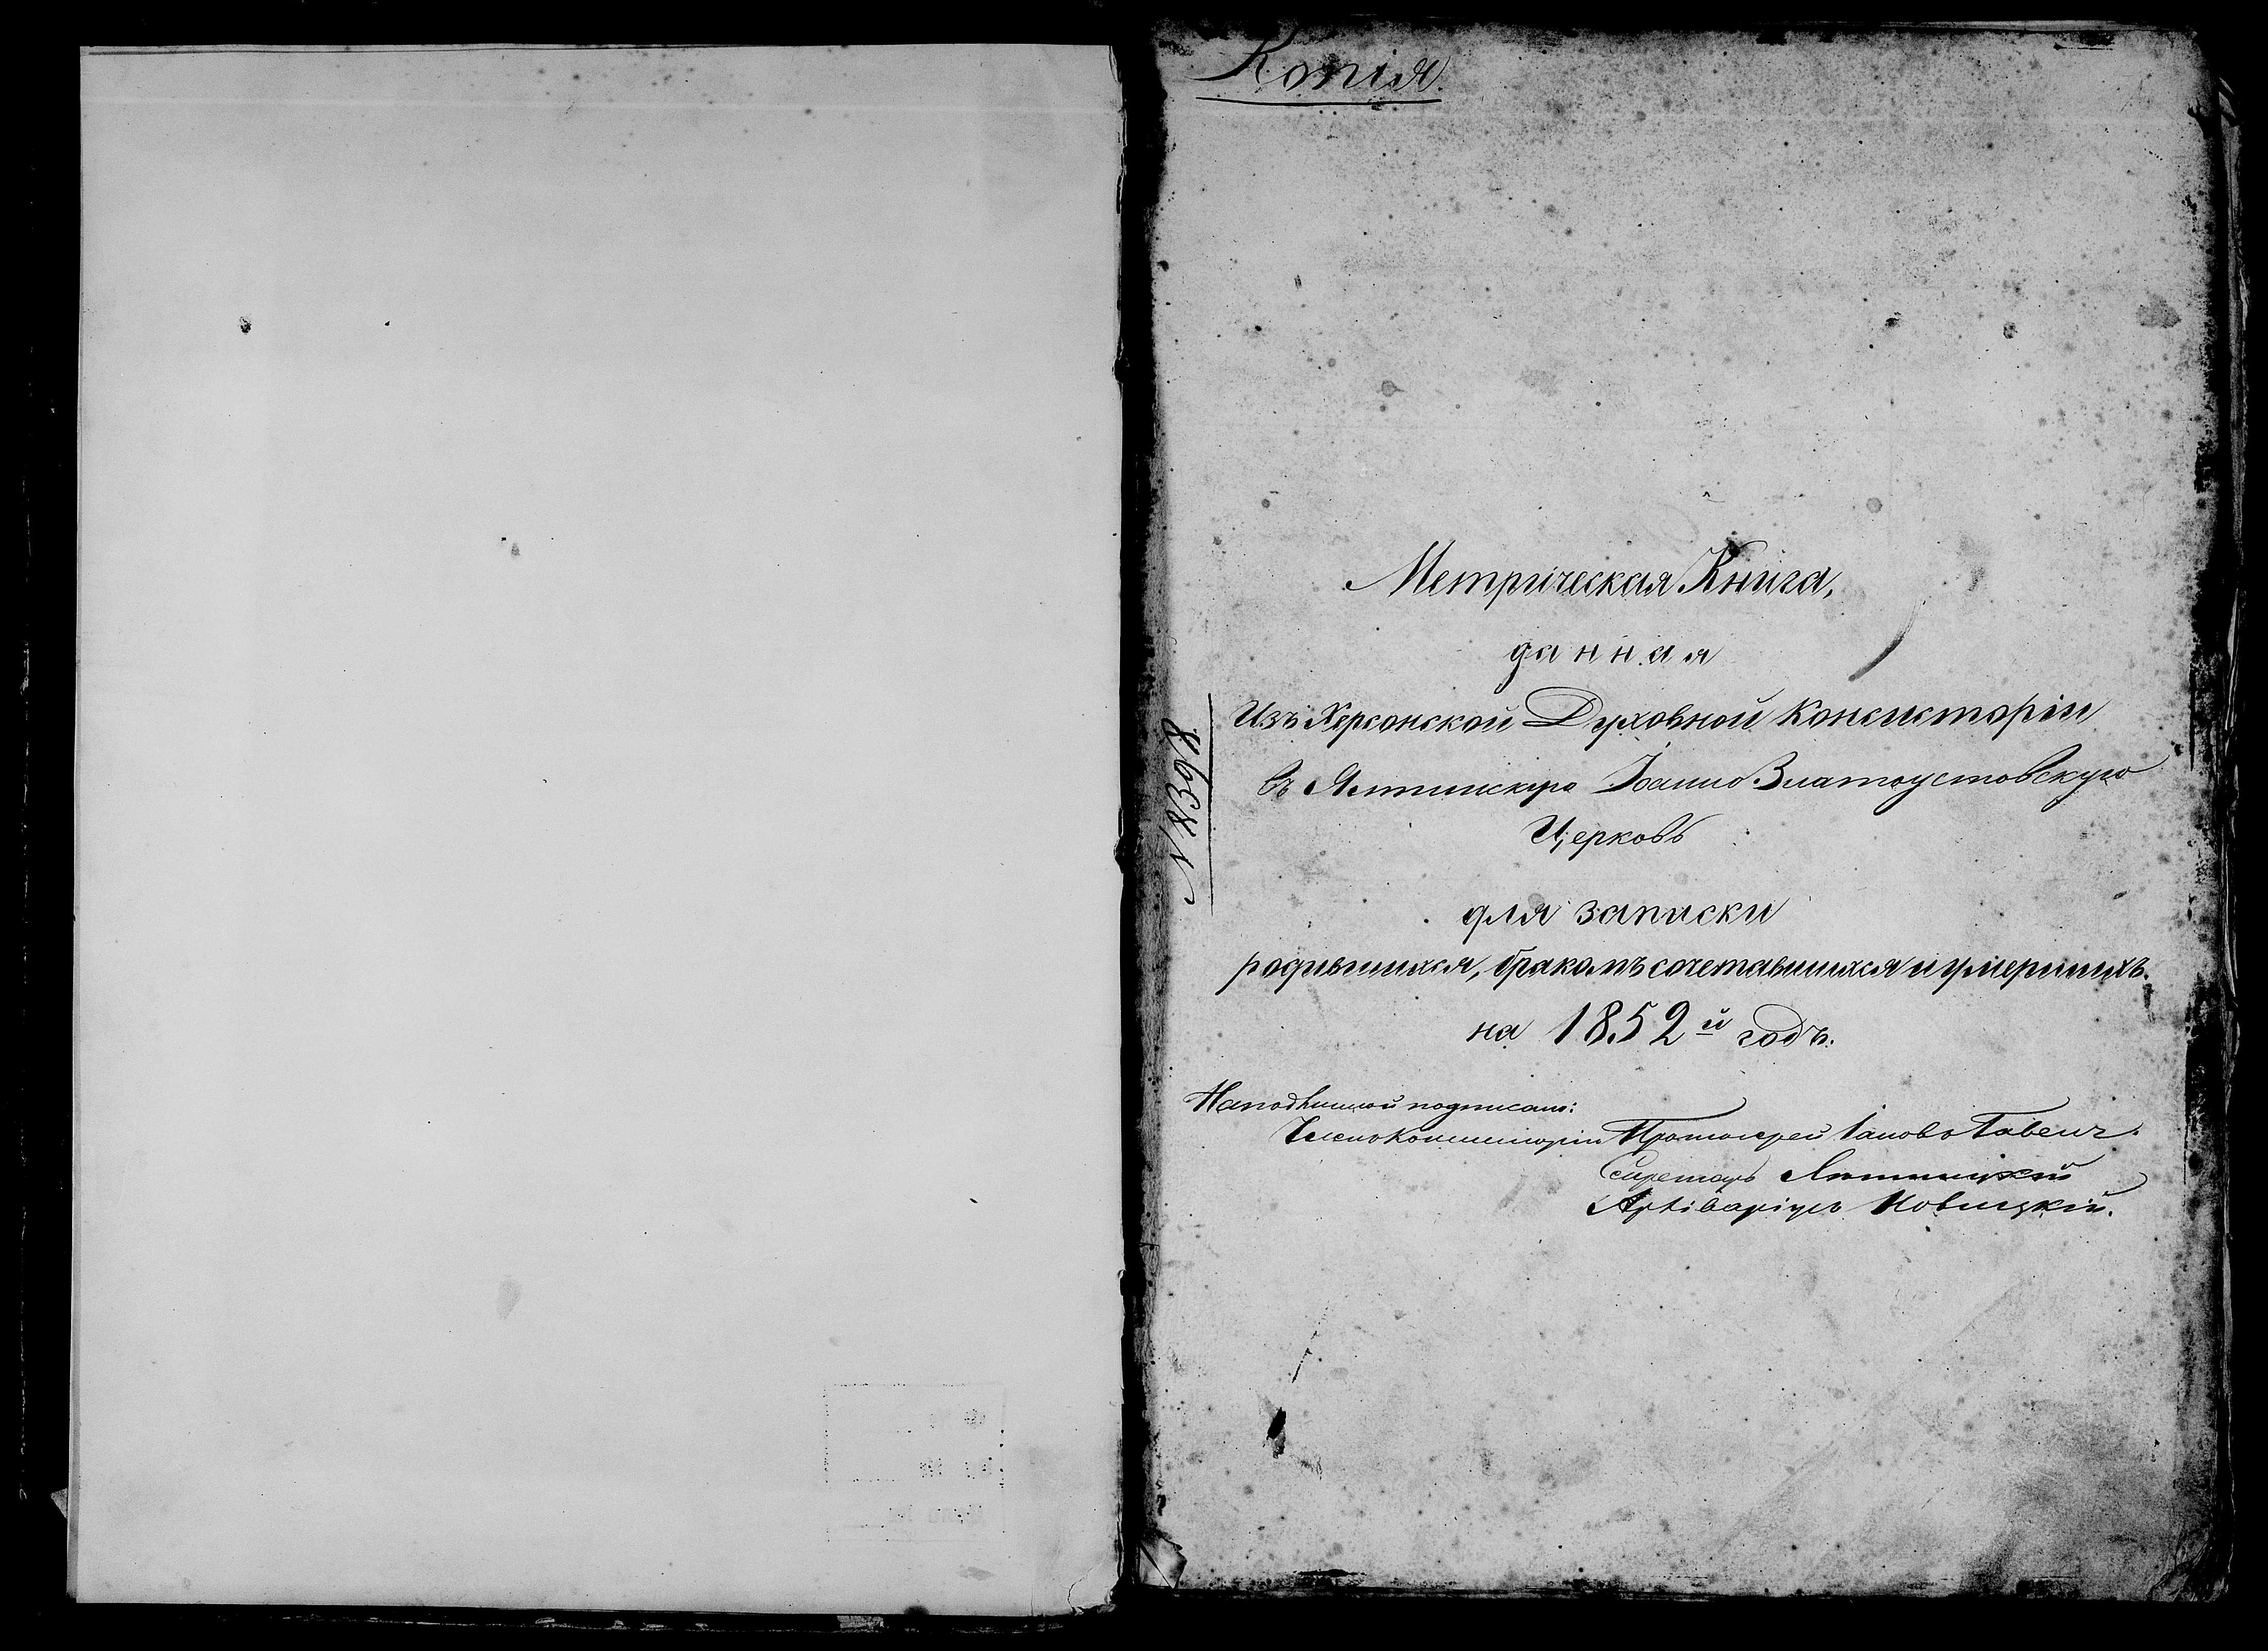 Копія.
Метрическая Книга,
данная
Изъ Херсонской Духовной Консисторіи
въ Ялтинскую Іоанно Златоустовскую
Церковь
для записки
родившихся, бракомъ сочетавшихся и умершихъ.
на 1852й годъ.
№ 8398
На подлинной подписали:
Членъ Консисторіи Протоіерей
Секретарь
Архиваріусъ Новицкій.